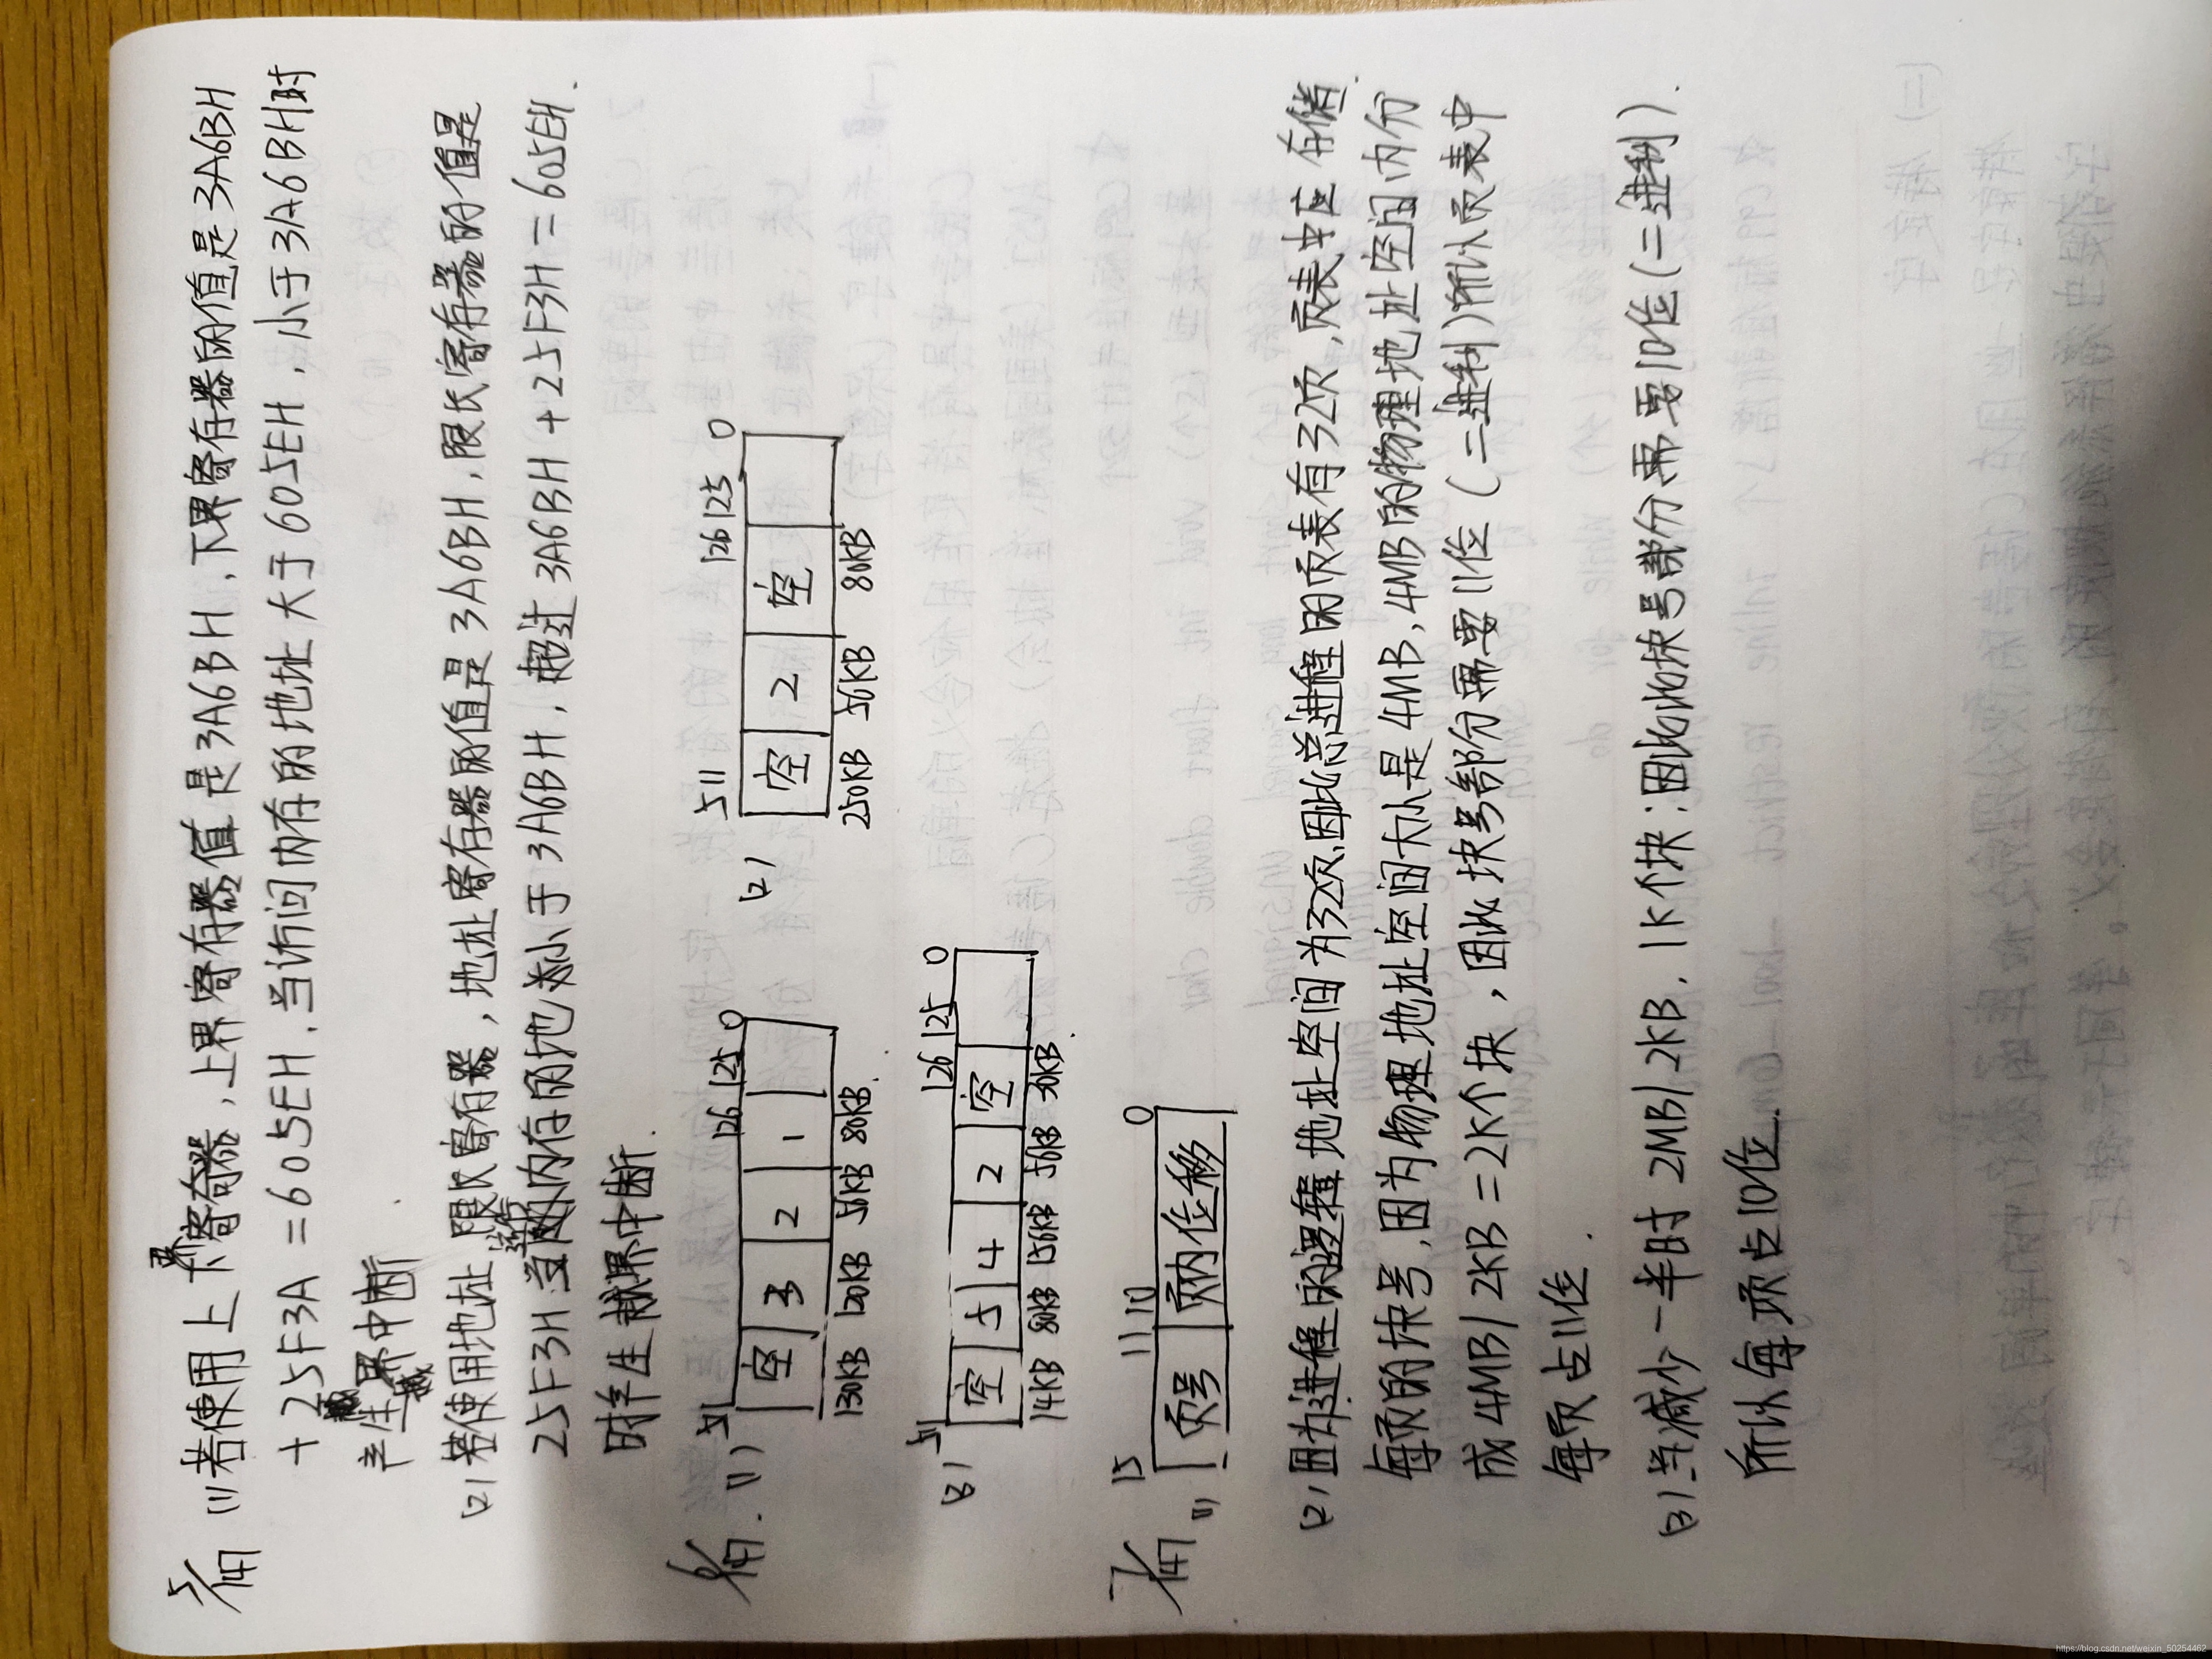 5/147 (1)若使用上下界寄存器，上界寄存器值是3A6BH，下界寄存器的值是3A6BH
+25F3A=605EH，当访问内存的地址大于605EH，小于3A6BH时
产生越界中断
(2)若使用地址，限长寄存器，地址寄存器的值是3A6BH，限长寄存器的值是
25F3H 当访问内存的地址小于3A6BH，超过3A6BH+25F3H=605EH.
时产生越界中断.
6/147. (1) 511 126 125 0
空 3 2 1
130KB 120KB 56KB 80KB.
(2) 511 126 125 0
空 2 空
250KB 56KB 80KB
(3) 511 126 125 0
空 5 4 2 空
14KB 80KB 156KB 56KB 30KB.
7/147 (1) 15 11 10 0
页号 页内位移
(2)因为进程的逻辑地址空间为32页，因此总进程的页表有32项，页表中应存储
每页的块号，因为物理地址空间大小是4MB，4MB的物理地址空间内分
成4MB/2KB=2K个块，因此块号部分需要11位(二进制)所以页表中
每页占11位.
(3)当减少一半时2MB/2KB，1K个块；因此块号部份需要10位(二进制).
所以每项占10位.
https://blog.csdn.net/weixin_50254462